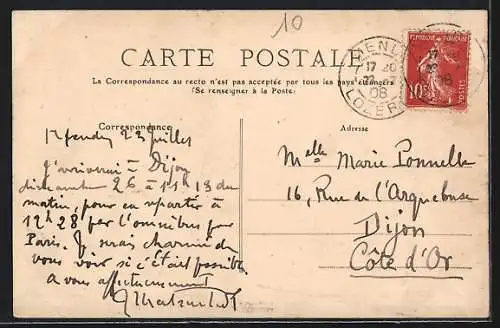 10
CARTE POSTALE
La Correspondance au recto n'est pas acceptée par tous les pays étrangers
(Se renseigner à la Poste)
MENDE
17 20
22 -7
08
LOZÈRE
REPUBLIQUE FRANÇAISE
10c
POSTES
Correspondance
Adresse
23 juillet
J'arriverai à Dijon
dimanche 26 à 11h 13 du
matin, pour en repartir à
12h 28 par l'omnibus pour
Paris. Je serais charmé de
vous voir si c'était possible
à vous affectueusement
Melle Marie Ponnelle
16, Rue de l'Arquebuse
Dijon
Côte d'Or